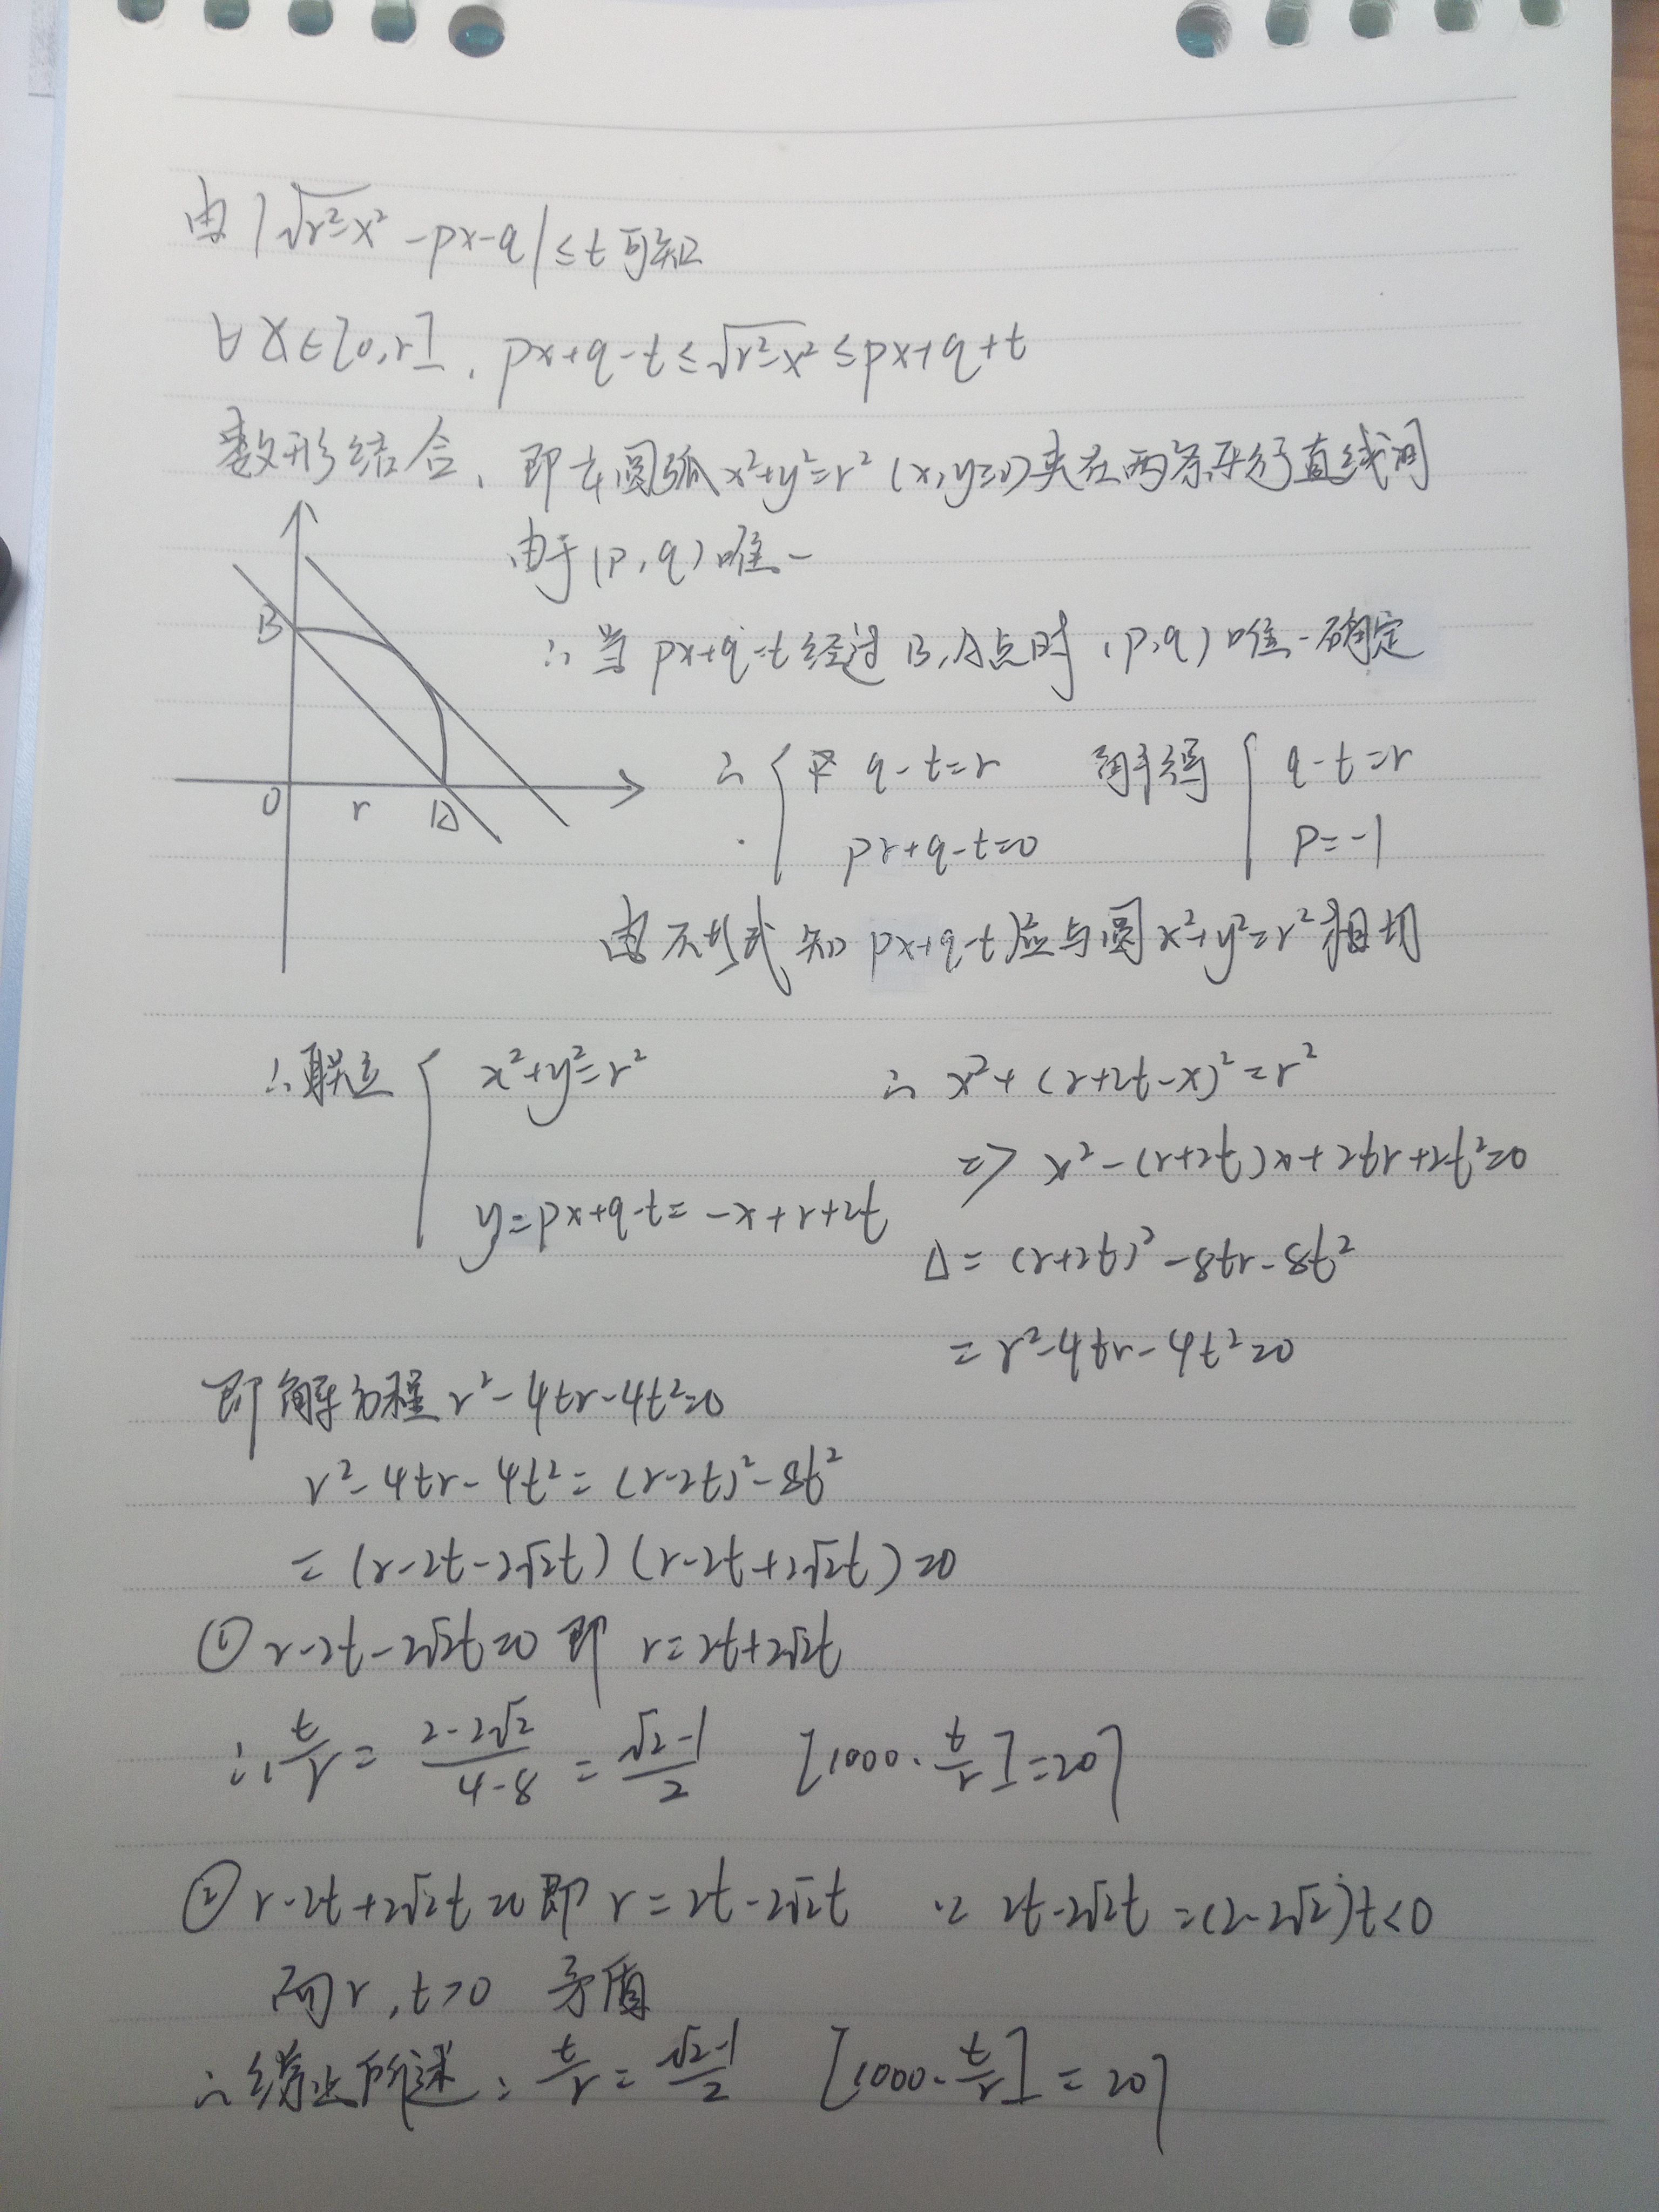 由|√(r²-x²) -px-q|≤t可知
∀x∈[0,r], px+q-t≤√(r²-x²)≤px+q+t
数形结合, 即圆弧x²+y²=r² (x,y≥0)夹在两条平行直线间
由于(p,q)唯一
∴当px+q-t经过B,A点时,(p,q)唯一确定
B
O r A
∴ { q-t=r 解得 { q-t=r
pr+q-t=0 p=-1
由不等式知px+q-t应与圆x²+y²=r²相切
∴联立 { x²+y²=r² ∴ x²+(r+2t-x)²=r²
=> x²-(r+2t)x+2tr+2t²=0
y=px+q-t=-x+r+2t
Δ=(r+2t)²-8tr-8t²
=r²-4tr-4t²=0
即解方程r²-4tr-4t²=0
r²-4tr-4t²=(r-2t)²-8t²
=(r-2t-2√2t)(r-2t+2√2t)=0
① r-2t-2√2t=0 即 r=2t+2√2t
∴ t/r = (2-2√2)/(4-8) = (√2-1)/2 [1000·t/r]=207
② r-2t+2√2t=0即 r=2t-2√2t ∵ 2t-2√2t=(2-2√2)t<0
而r,t>0 矛盾
∴综上所述: t/r = (√2-1)/2 [1000·t/r]=207